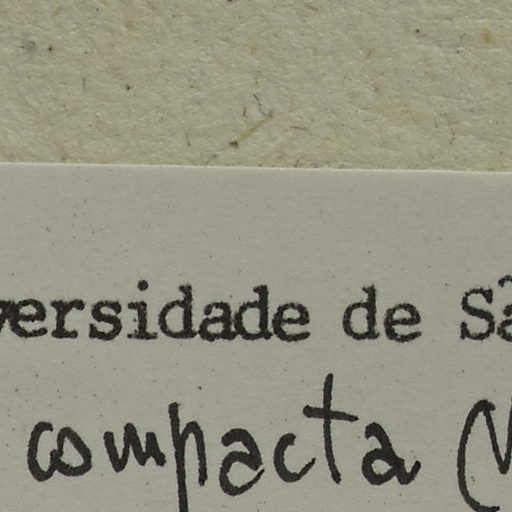 versidade de Sã
compacta (